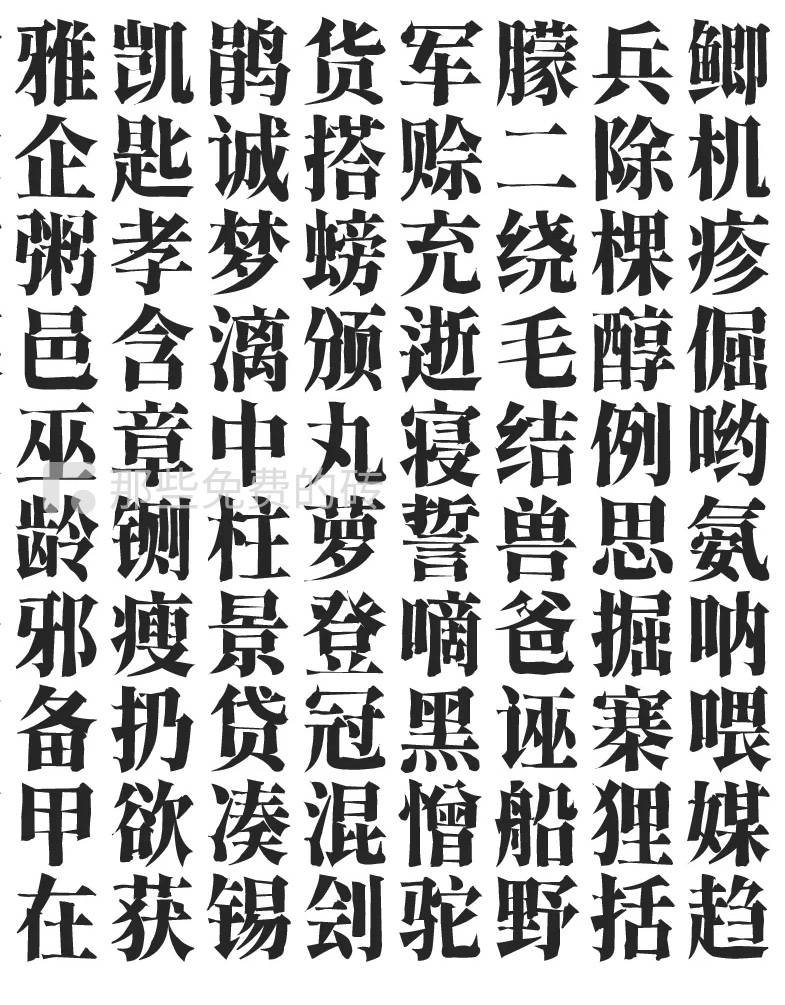 雅凯鹃货军朦兵鲫
企匙诚搭赊二除机
粥孝梦螃充绕棵疹
邑含漓颁逝毛醇倔
巫章中丸寝结例哟
那些免费的砖
龄铡柱萝誓兽思氨
邪瘦景登嘀爸掘呐
备扔贷冠黑诬寨喂
甲欲凑混憎船狸媒
在获锡刽驼野括趋